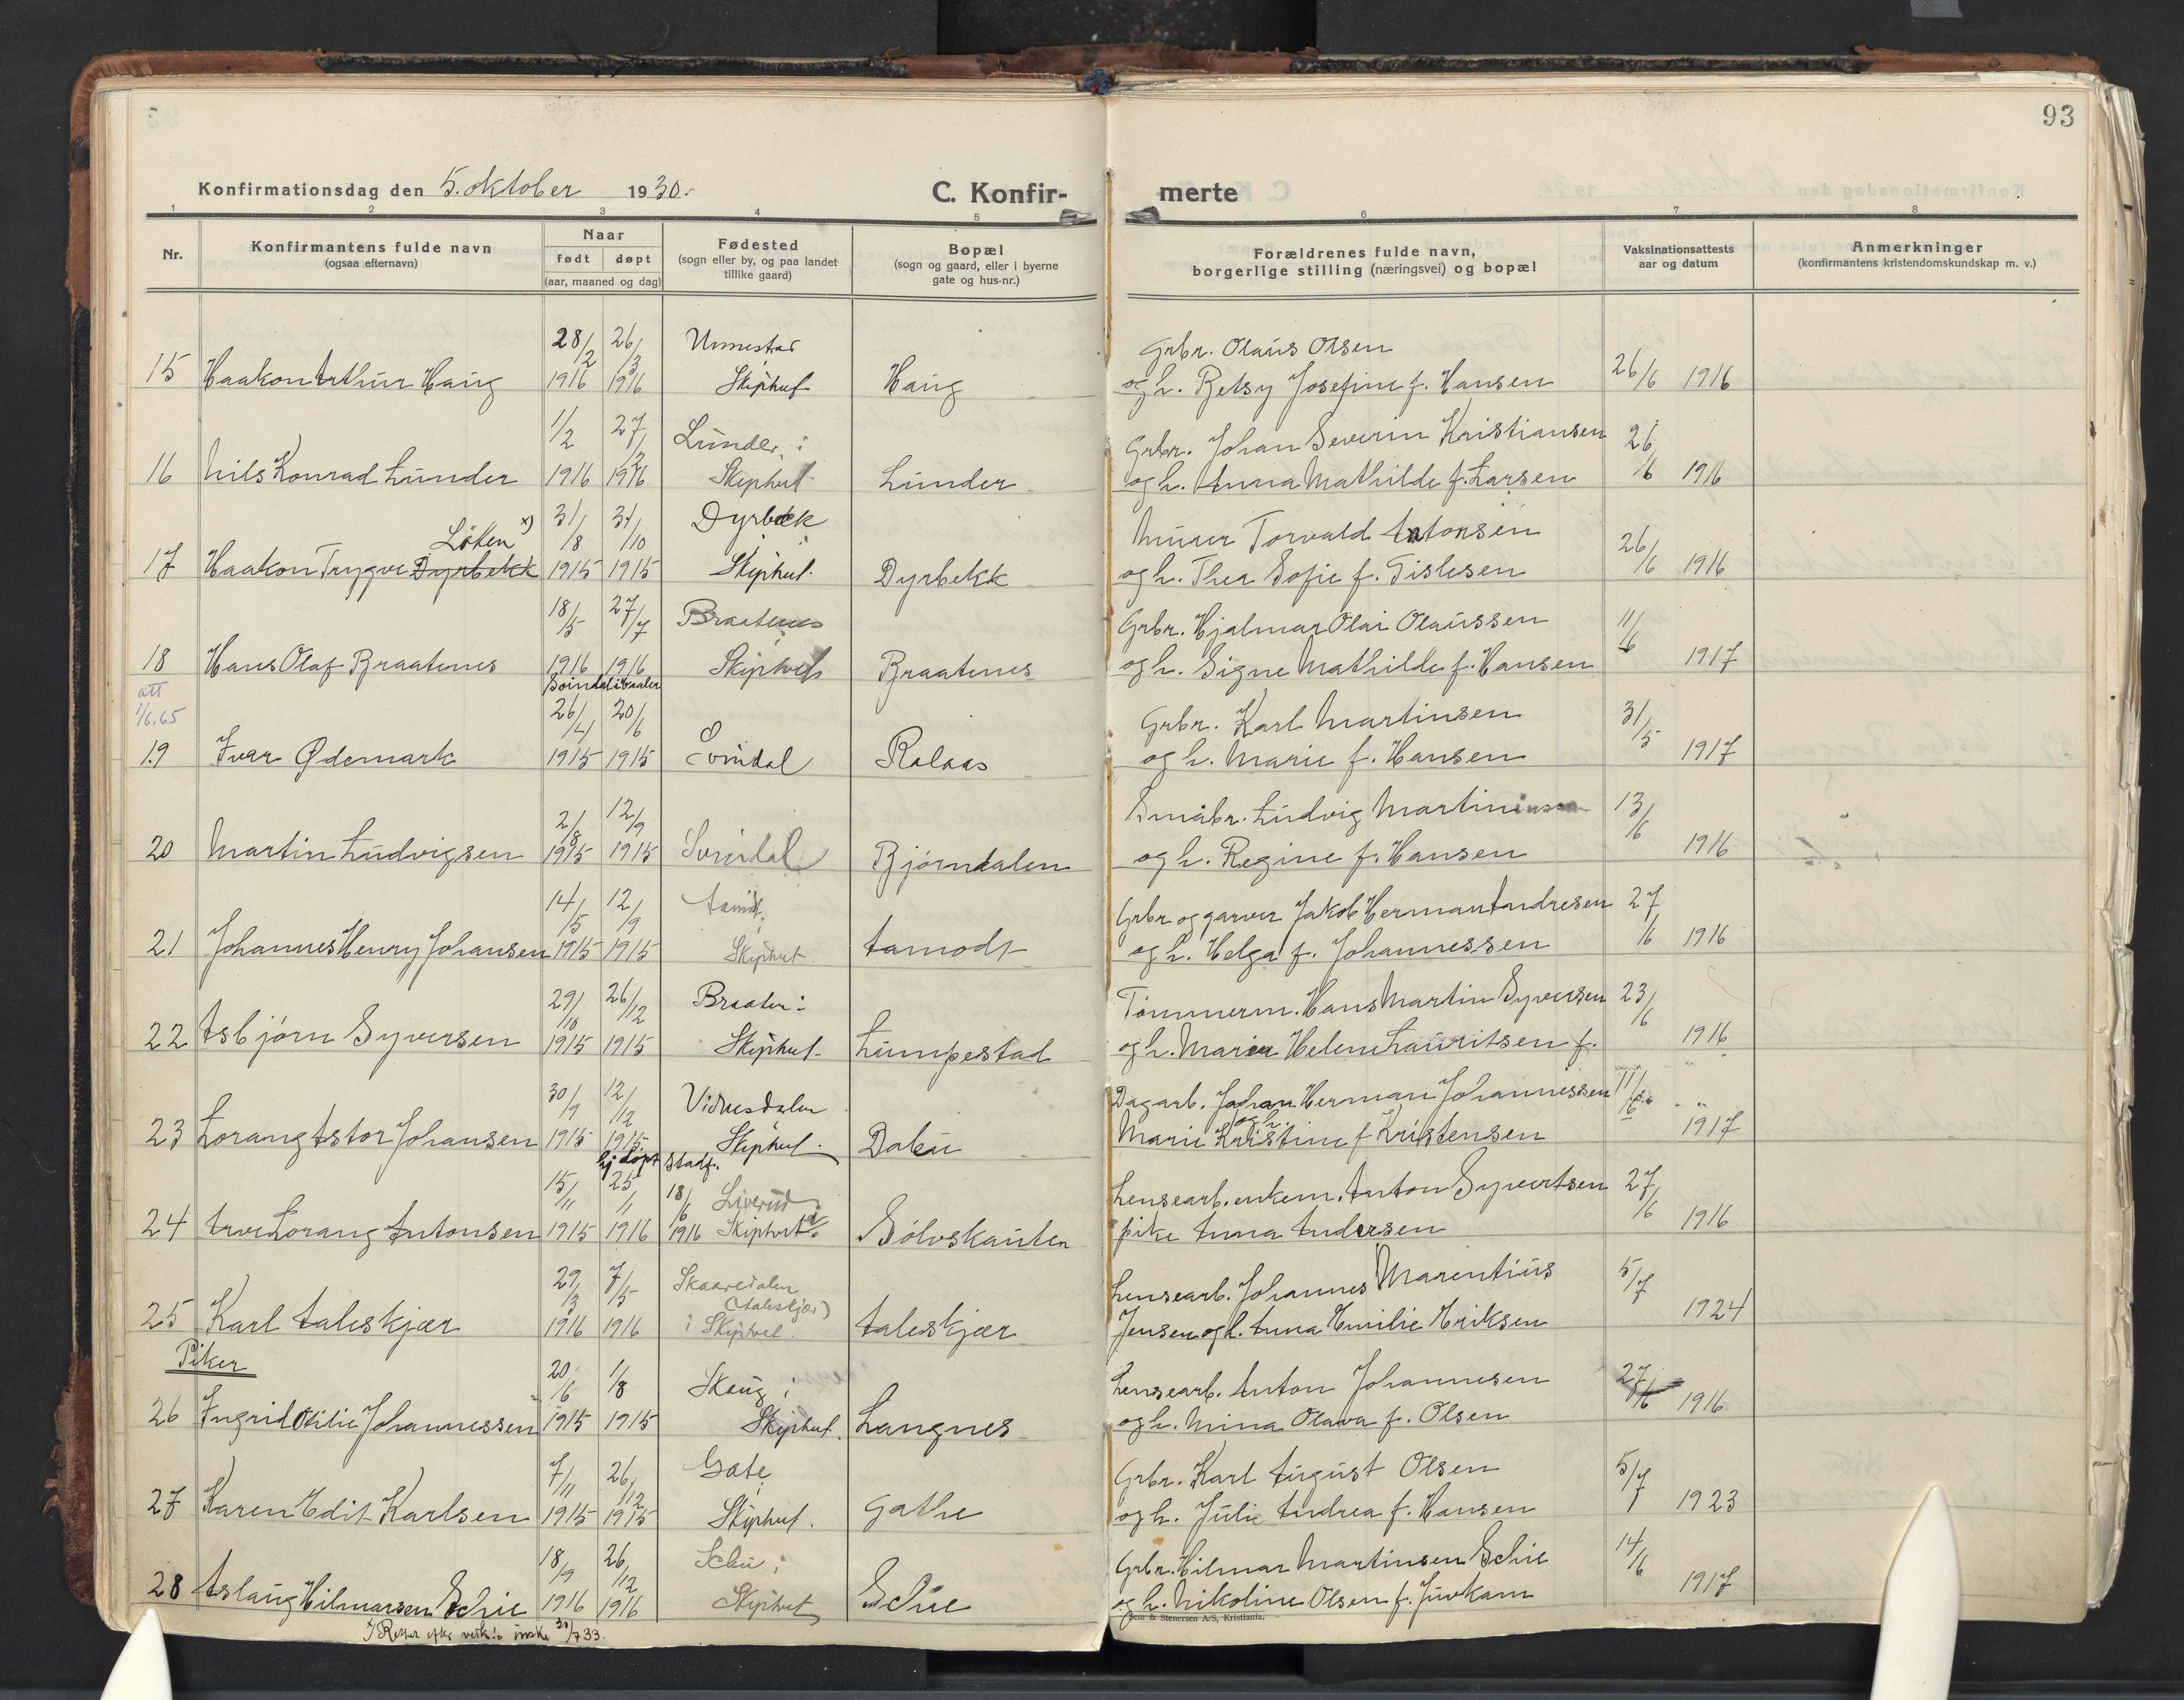 93
Konfirmationsdag den 5. oktober 1930.
C. Konfir-
merte
1 2 3 4 5 6 7 8
Nr.
Konfirmantens fulde navn
(ogsaa efternavn)
Naar
født døpt
(aar, maaned og dag)
Fødested
(sogn eller by, og paa landet
tillike gaard)
Bopæl
(sogn og gaard, eller i byerne
gate og hus-nr.)
Forældrenes fulde navn,
borgerlige stilling (næringsvei) og bopæl
Vaksinationsattests
aar og datum
Anmerkninger
(konfirmantens kristendomskundskap m. v.)
28/2 26/3 Unnestad Grbr. Olaus Olsen
15 Haakon Arthur Haug 1916 1916 Skiphvet Haug og h. Betsy Josefine f. Hansen 26/6 1916
1/2 27/12 Lunder i Grbr. Johan Severin Kristiansen 26
16 Nils Konrad Lunder 1916 1916 Skiphvet Lunder og h. Anna Mathilde f. Larsen /6 1916
Löken x) 31/8 31/10 Dyrbek Murer Torvald Antonsen
17 Haakon Trygve Dyrbekk 1915 1915 Skiphvet. Dyrbekk og h. Thea Sofie f. Gislesen 26/6 1916
18/5 27/7 Braatenes Grbr. Hjalmar Olai Olaussen 11/6
18 Hans Olaf Braatenes 1916 1916 Skiphvet Braatenes og h. Signe Mathilde f. Hansen 1917
att
1/6.65
Svindal i Vaaler
26/4 20/6 Grbr. Karl Martinsen 31/5
19 Ivar Ødemark 1915 1915 Svindal Ralaas og h. Marie f. Hansen 1917
2/8 12/9 Småbr. Ludvig Martiniussen 13/6
20 Martin Ludvigsen 1915 1915 Svindal Bjørndalen og h. Regine f. Hansen 1916
14/5 12/9 Grbr og garver Jakob Herman Andresen 27
21 Johannes Henry Johansen 1915 1915 Skiphvet. Aamodt og h. Helga f. Johannessen /6 1916
29/10 26/12 Braaten i Tømmerm. Hans Martin Syversen 23/6
22 Asbjørn Syversen 1915 1915 Skiphvet Lumpestad og h. Marie Helene Lauritsen f. 1916
30/9 12/12 Vidnesdalen Dagarb. Johan Herman Johannessen 11/6
og h.
23 Lorang Astor Johansen 1915 1915 Skiphvet. Dalen Marie Kristine f Kristensen 1917
hj døpt stadf.
15/11 25/1 18/6 Liverud Lensearb. enkem. Anton Syvertsen 27/6
24 Arve Lorang Antonsen 1915 1916 1916 Skiphvet Sölvskauten pike Anna Andersen 1916
29/3 7/5 Skaaredalen Lensearb. Johannes Marentius 5/7
(Aaleskjær)
25 Karl Aaleskjær 1916 1916 i Skiphvet. Aaleskjær Jensen og h. Anna Emilie Eriksen 1924
Piker
20/6 1/8 Skaug i Lensearb. Anton Johannesen 27/6
26 Ingrid Otilie Johannessen 1915 1915 Skiphvet. Langnes og h. Mina Olava f. Olsen 1916
7/11 26/12 Gate Grbr. Karl August Olsen 5/7
27 Karen Edit Karlsen 1915 1915 Skiphvet. Gathe og h. Julie Andrea f. Hansen 1923
18/9 26/12 Schie i Grbr. Hilmar Martinsen Schie 14/6
28 Aslaug Hilmarsen Schie 1916 1916 Skiphvet Schie og h. Nikoline Olsen f. Juvkam 1917
Sem & Stenersen A/S, Kristiania.
x) Rettet efter ønske 20/7 33.